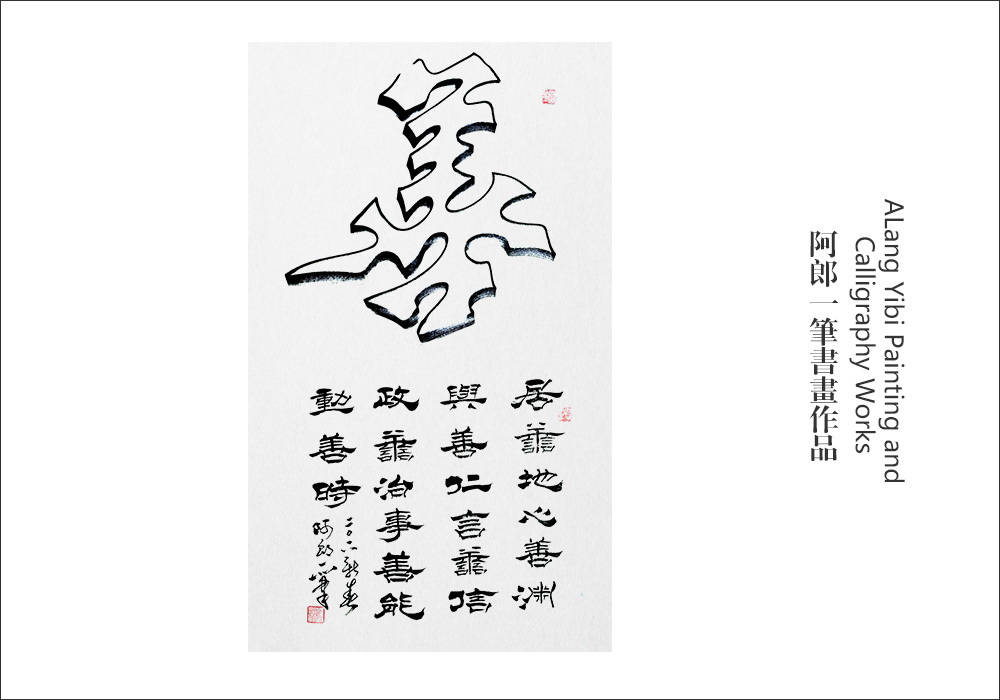 善
居譱地心善渊
與善仁言譱信
政譱治事善能
動善時
新春
阿郎一筆
ALang Yibi Painting and
Calligraphy Works
阿郎一筆書畫作品